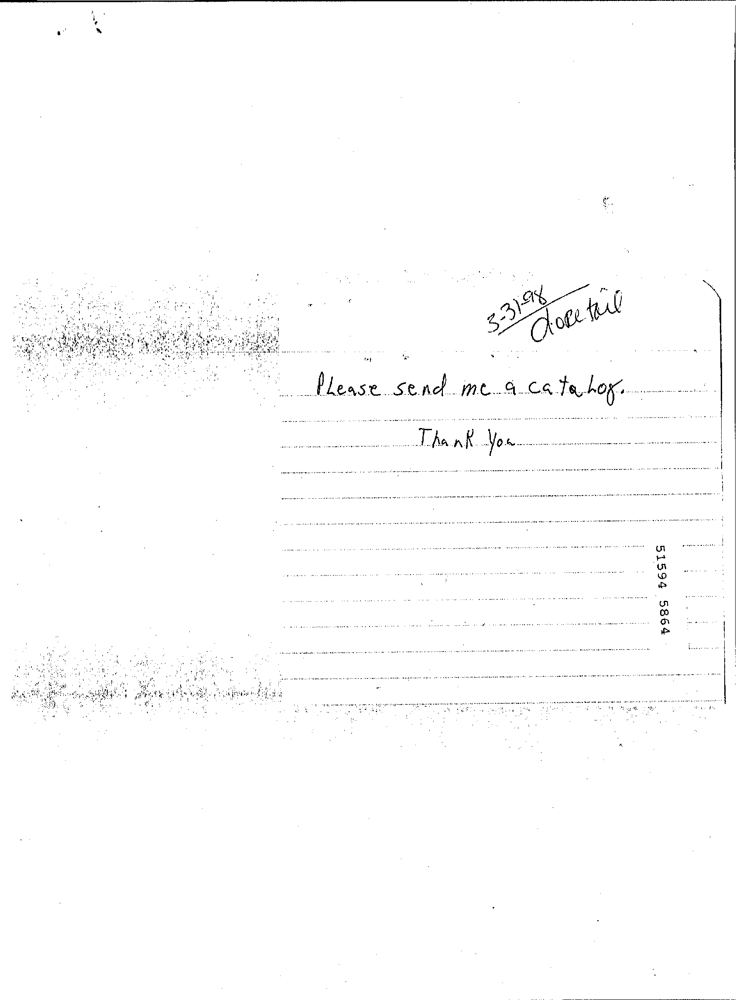 3-31-98
Please send me a cataLog.
Thank You
51594 5864